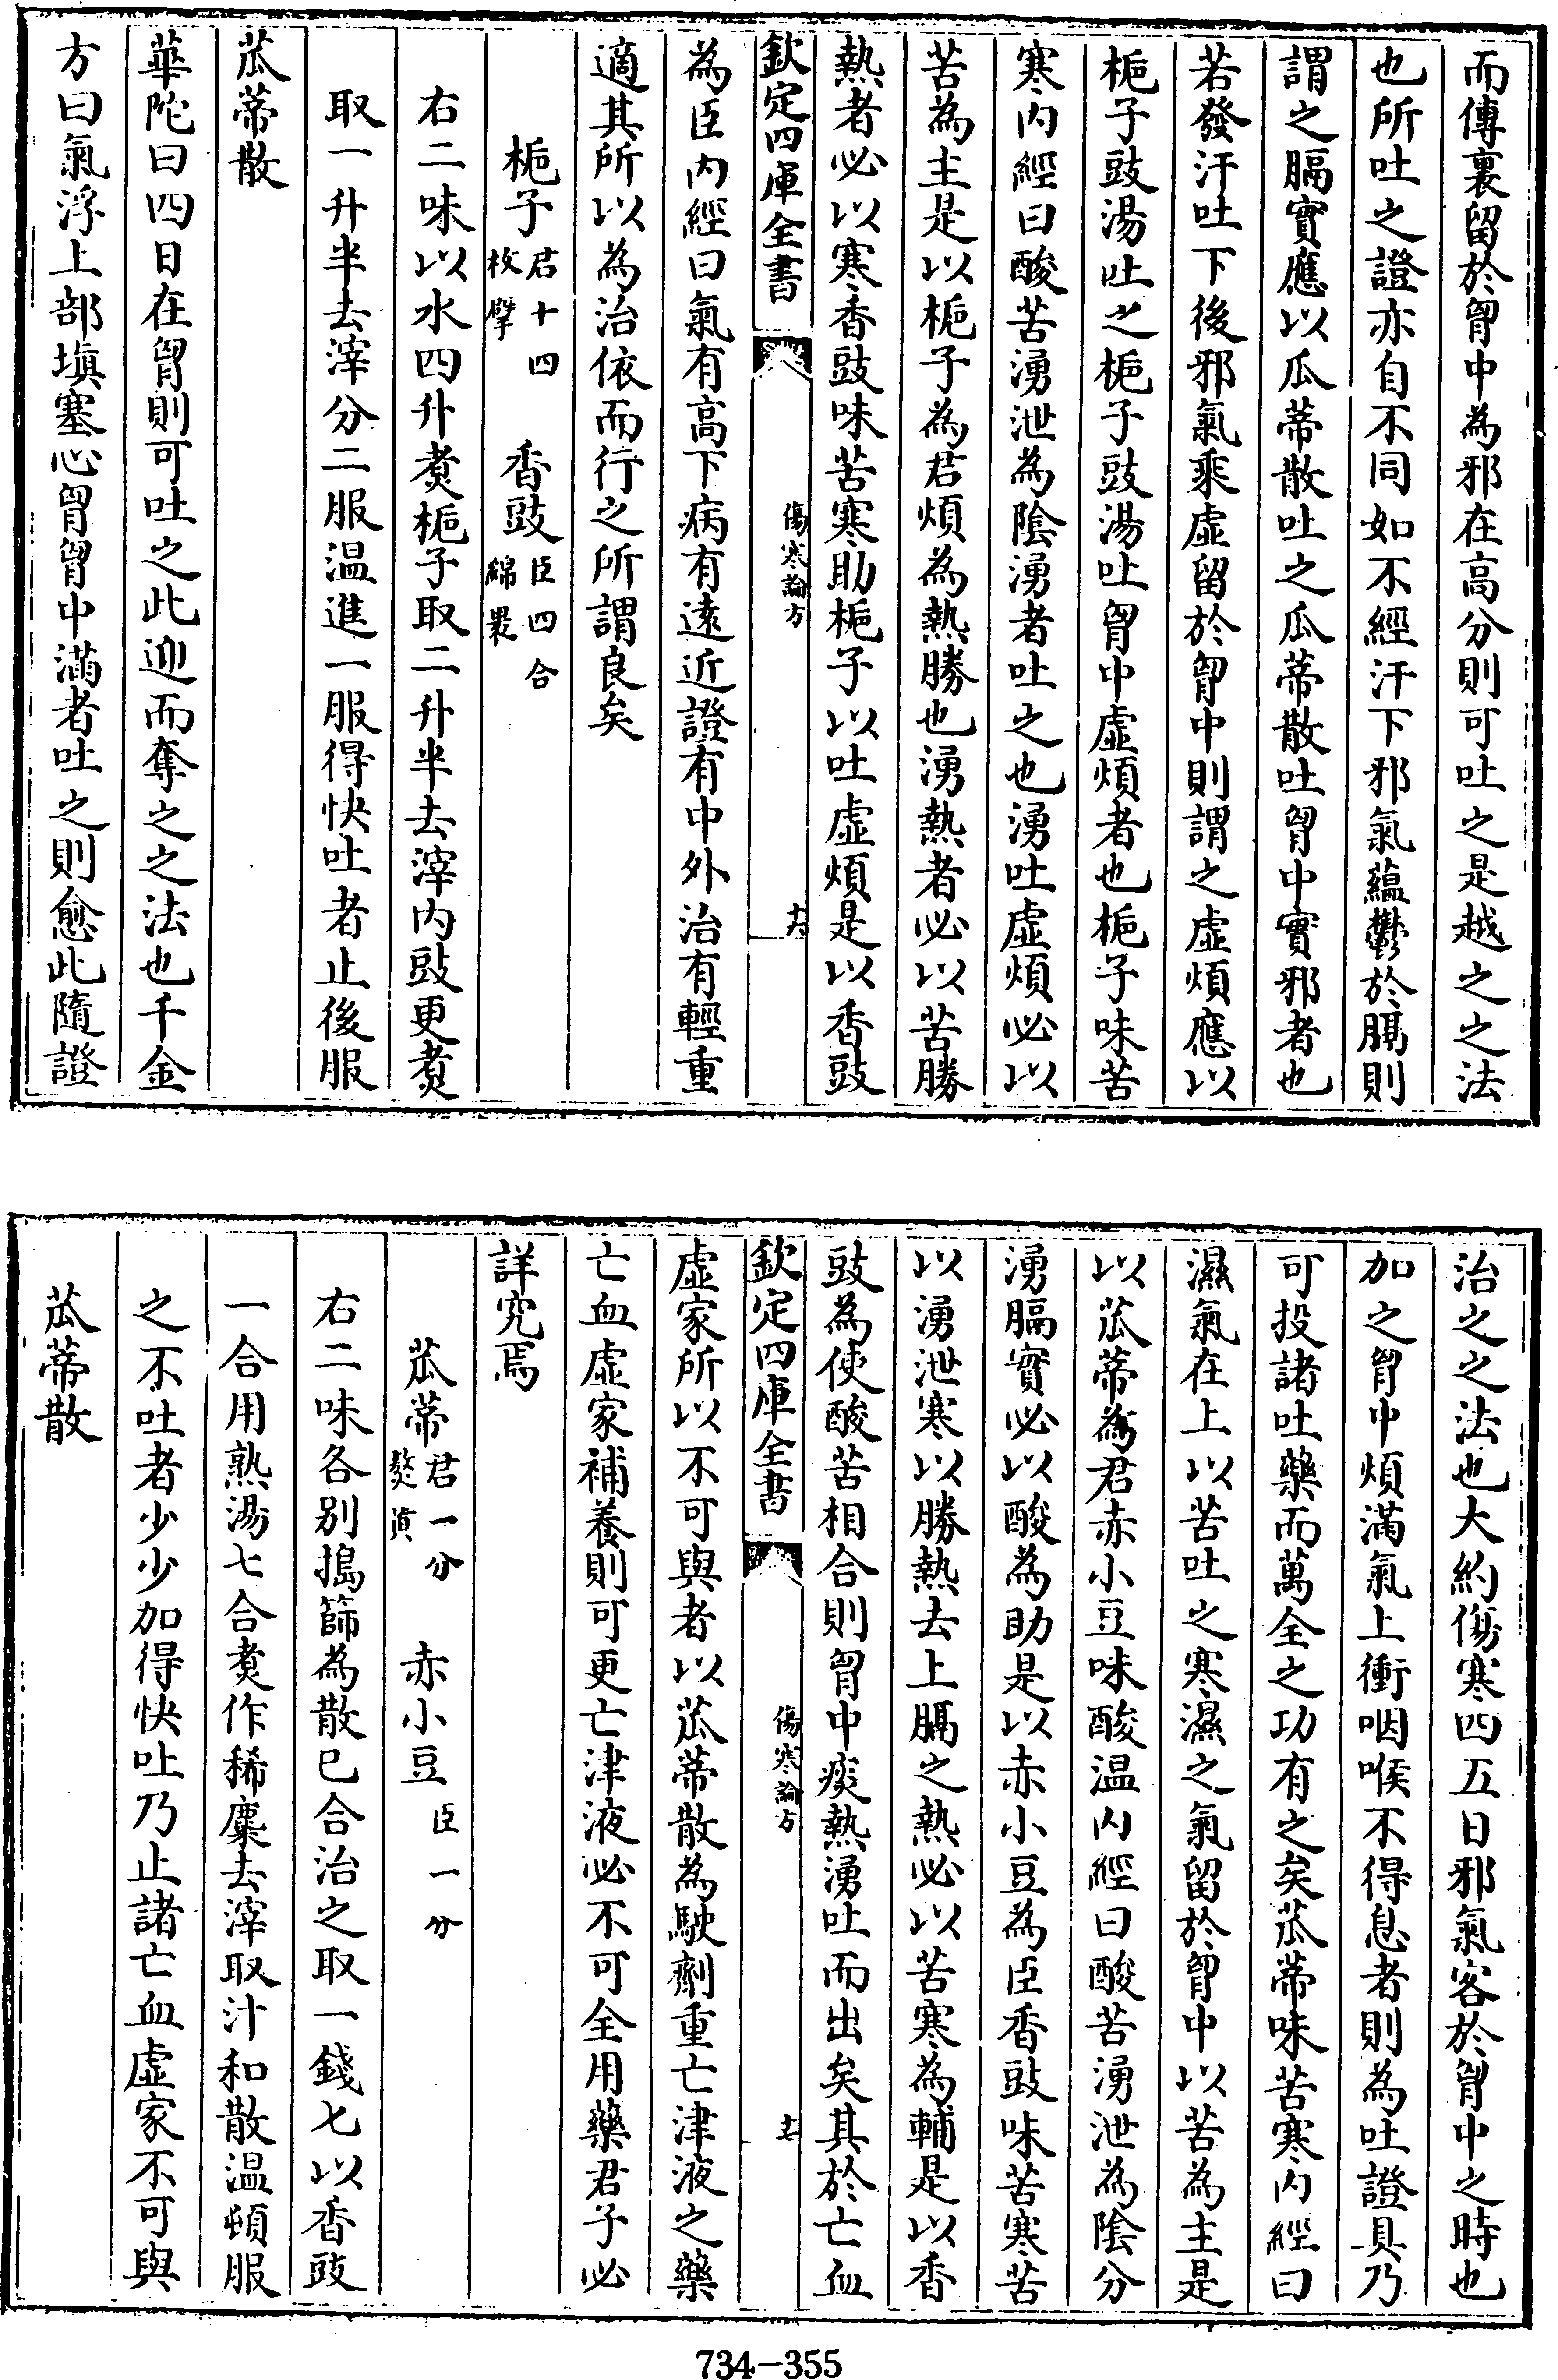 而傳裏留於胷中為邪在高分則可吐之是越之之法
也所吐之證亦自不同如不經汗下邪氣蘊鬱於膈則
謂之膈實應以瓜蒂散吐之瓜蒂散吐胷中實邪者也
若發汗吐下後邪氣乘虛留於胷中則謂之虛煩應以
梔子豉湯吐之梔子豉湯吐胷中虛煩者也梔子味苦
寒内經曰酸苦湧泄為陰湧者吐之也湧吐虛煩必以
苦為主是以梔子為君煩為熱勝也湧熱者必以苦勝
熱者必以寒香豉味苦寒助梔子以吐虛煩是以香豉
欽定四庫全書 傷寒論方 十六
為臣内經曰氣有高下病有遠近證有中外治有輕重
適其所以為治依而行之所謂良矣
梔子君十四枚擘 香豉臣四合綿裹
右二味以水四升煑梔子取二升半去滓内豉更煑
取一升半去滓分二服温進一服得快吐者止後服
苽蒂散
華陀曰四日在胷則可吐之此迎而奪之之法也千金
方曰氣浮上部填塞心胷胷中滿者吐之則愈此隨證
治之之法也大約傷寒四五日邪氣客於胷中之時也
加之胷中煩滿氣上衝咽喉不得息者則為吐證具乃
可投諸吐藥而萬全之功有之矣苽蒂味苦寒内經曰
濕氣在上以苦吐之寒濕之氣留於胷中以苦為主是
以苽蒂為君赤小豆味酸温内經曰酸苦湧泄為陰分
湧膈實必以酸為助是以赤小豆為臣香豉味苦寒苦
以湧泄寒以勝熱去上膈之熱必以苦寒為輔是以香
豉為使酸苦相合則胷中痰熱湧吐而出矣其於亡血
欽定四庫全書 傷寒論方 十七
虛家所以不可與者以苽蒂散為駛劑重亡津液之藥
亡血虛家補養則可更亡津液必不可全用藥君子必
詳究焉
苽蒂君一分熬黄 赤小豆臣一分
右二味各别搗篩為散已合治之取一錢匕以香豉
一合用熟湯七合煑作稀糜去滓取汁和散温頓服
之不吐者少少加得快吐乃止諸亡血虛家不可與
苽蒂散
734-355